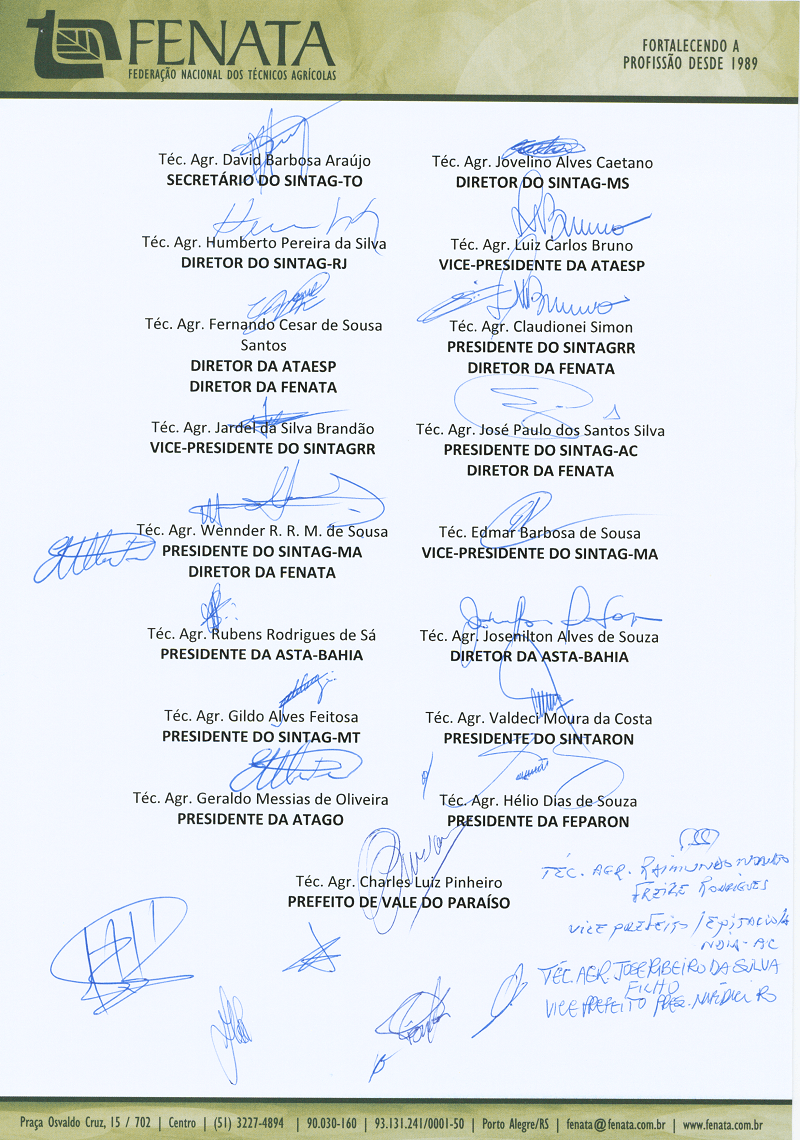 FENATA
FEDERAÇÃO NACIONAL DOS TÉCNICOS AGRÍCOLAS
FORTALECENDO A
PROFISSÃO DESDE 1989
Téc. Agr. David Barbosa Araújo
SECRETÁRIO DO SINTAG-TO
Téc. Agr. Jovelino Alves Caetano
DIRETOR DO SINTAG-MS
Téc. Agr. Humberto Pereira da Silva
DIRETOR DO SINTAG-RJ
Téc. Agr. Luiz Carlos Bruno
VICE-PRESIDENTE DA ATAESP
Téc. Agr. Fernando Cesar de Sousa
Santos
DIRETOR DA ATAESP
DIRETOR DA FENATA
Téc. Agr. Claudionei Simon
PRESIDENTE DO SINTAGRR
DIRETOR DA FENATA
Téc. Agr. Jardel da Silva Brandão
VICE-PRESIDENTE DO SINTAGRR
Téc. Agr. José Paulo dos Santos Silva
PRESIDENTE DO SINTAG-AC
DIRETOR DA FENATA
Téc. Agr. Wennder R. R. M. de Sousa
PRESIDENTE DO SINTAG-MA
DIRETOR DA FENATA
Téc. Agr. Edmar Barbosa de Sousa
VICE-PRESIDENTE DO SINTAG-MA
Téc. Agr. Rubens Rodrigues de Sá
PRESIDENTE DA ASTA-BAHIA
Téc. Agr. Josenilton Alves de Souza
DIRETOR DA ASTA-BAHIA
Téc. Agr. Gildo Alves Feitosa
PRESIDENTE DO SINTAG-MT
Téc. Agr. Valdeci Moura da Costa
PRESIDENTE DO SINTARON
Téc. Agr. Geraldo Messias de Oliveira
PRESIDENTE DA ATAGO
Téc. Agr. Hélio Dias de Souza
PRESIDENTE DA FEPARON
Téc. Agr. Charles Luiz Pinheiro
PREFEITO DE VALE DO PARAÍSO
TÉC. AGR. RAIMUNDO NONATO
FREIRE RODRIGUES
VICE PREFEITO / EPITACIOLA
NDIA-AC
TÉC. AGR. JOSE RIBEIRO DA SILVA
FILHO
VICE PREFEITO
Praça Osvaldo Cruz, 15 / 702 | Centro | (51) 3227-4894 | 90.030-160 | 93.131.241/0001-50 | Porto Alegre/RS | fenata@fenata.com.br | www.fenata.com.br